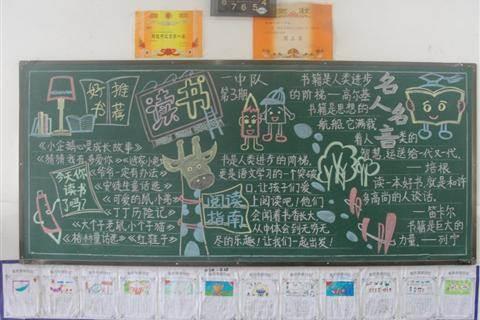 好书推荐
《小企鹅心灵成长故事》
《猜猜我有多爱你》
《爷爷一定有办法》
《安徒生童话选》
《可爱的鼠小弟》
《丁丁历险记》
《大个子老鼠小个子猫》
《格林童话选》《红鞋子》
今天你读书了吗?
读书
一中队
第3期
书是人类进步的阶梯,
更是语文学习的一个突破
口,让孩子们爱
上阅读吧!他们
会闻着书香长大
从中体会到无穷无
尽的乐趣!让我们一起出发!
阅读指南
名人名言
书籍是人类进步
的阶梯——高尔基
书籍是思想的
航船,它满载
着人类的
智慧,运送给一代又一代。
——培根
读一本好书,就是和许
多高尚的人谈话。
——笛卡尔
书籍是巨大的
力量。——列宁